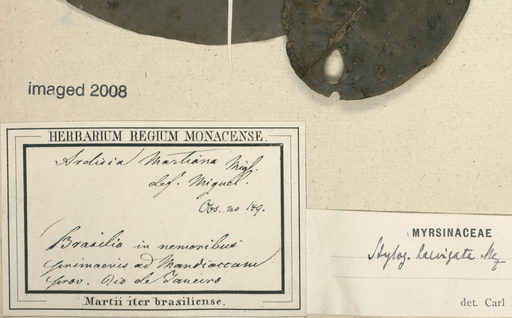 imaged 2008
HERBARIUM REGIUM MONACENSE.
Ardisia Martiana Miq.
def. Miquel.
Obs. no 149.
Brasilia in nemoribus
primaevis ad Mandioccam
prov. Rio de Janeiro
Martii iter brasiliense.
MYRSINACEAE
Stylog. laevigata Mez
det. Carl